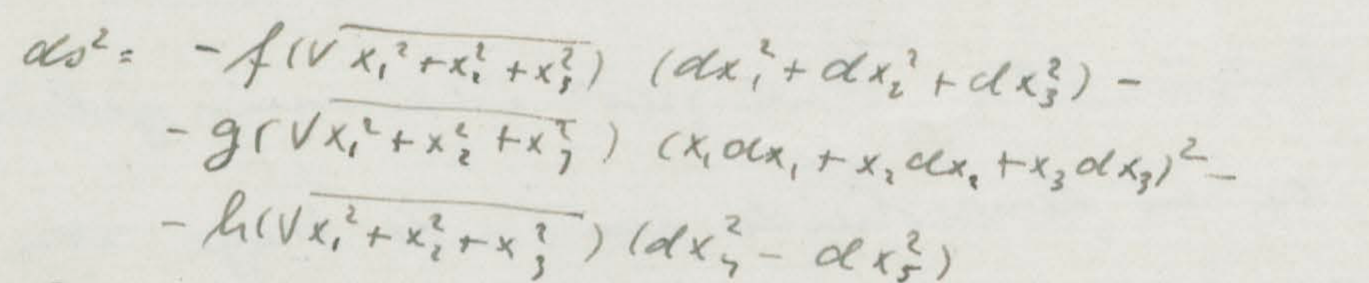 ds² = - f(√x₁² + x₂² + x₃²) (dx₁² + dx₂² + dx₃²) -
- g(√x₁² + x₂² + x₃²) (x₁dx₁ + x₂dx₂ + x₃dx₃)² -
- h(√x₁² + x₂² + x₃²) (dx₄² - dx₅²)